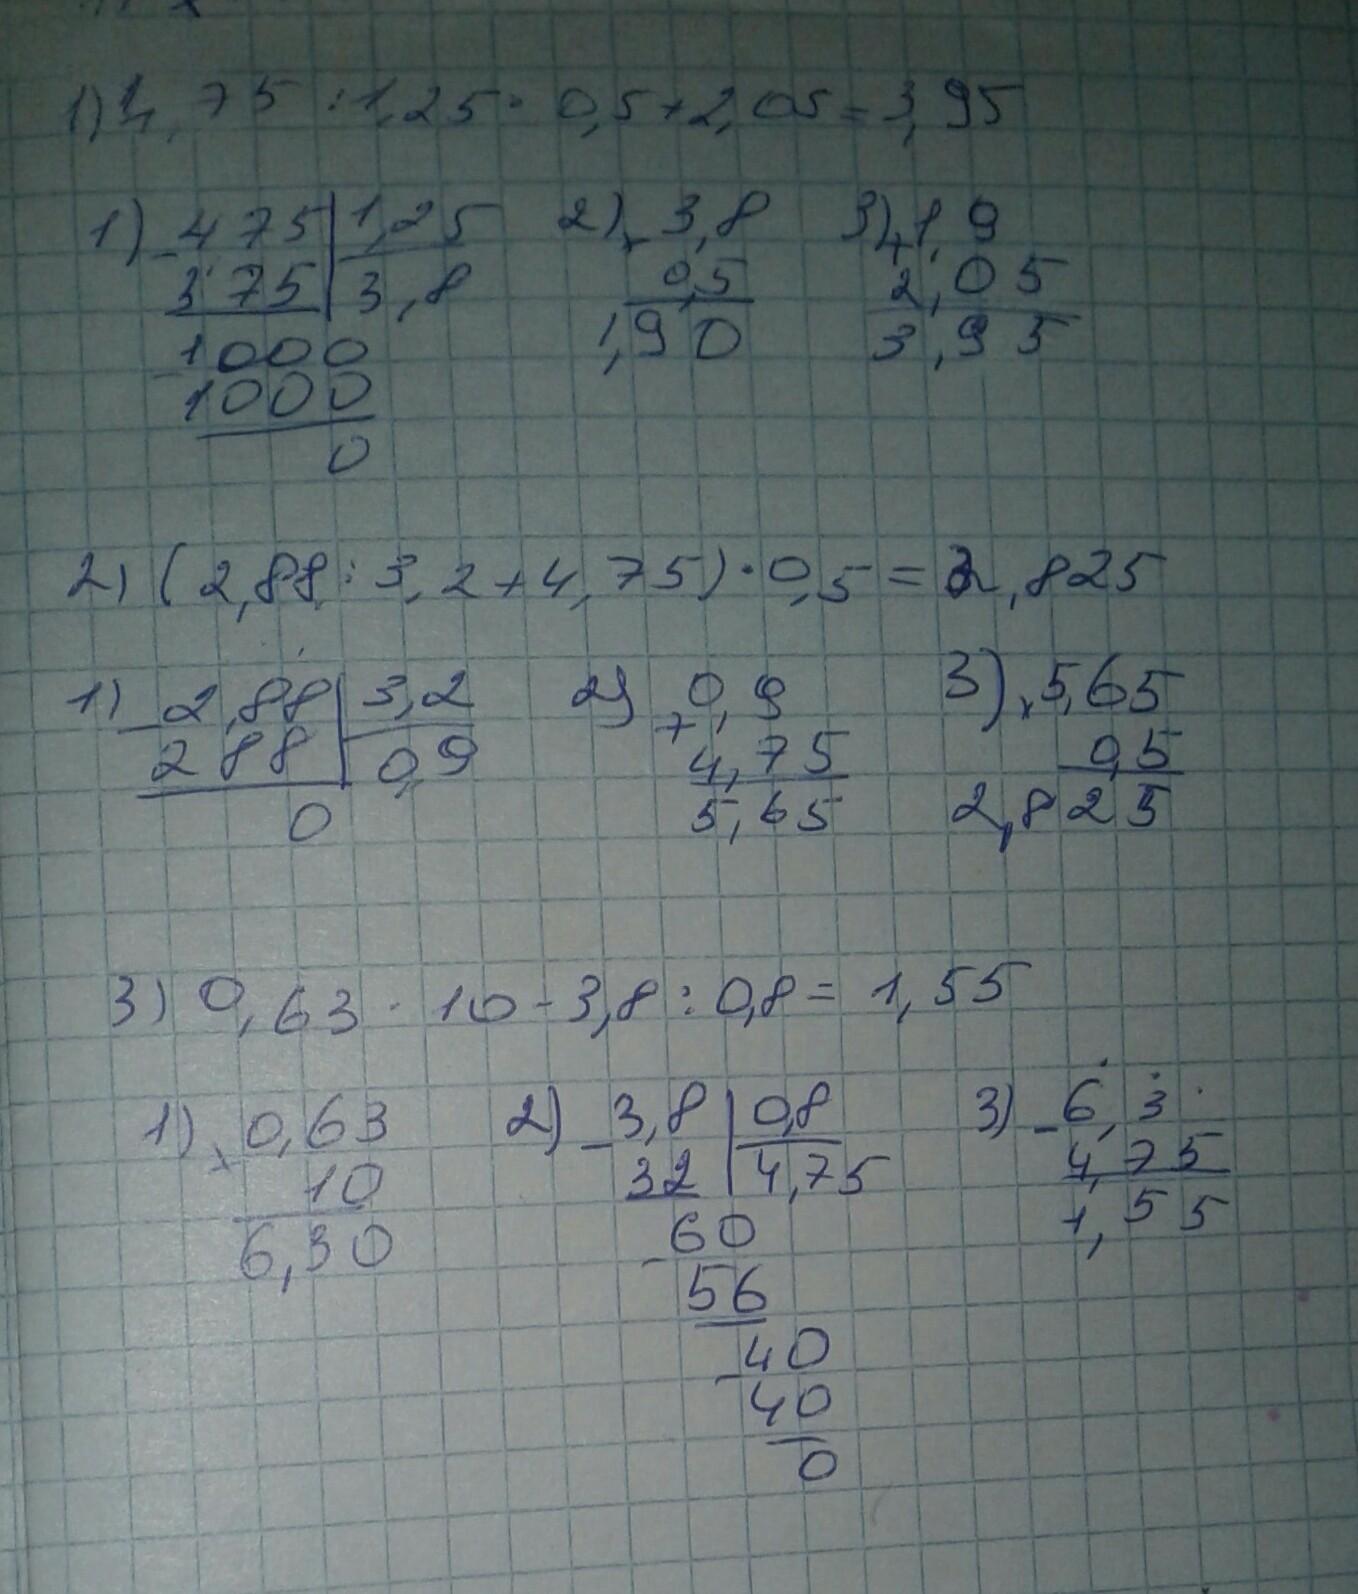 1) 4,75 : 1,25 · 0,5 + 2,05 = 3,95
1) - 4 75 | 1,25 2) × 3,8 3) + 1,9
3 75 | 3,8 0,5 2,05
- 1000 1,90 3,95
1000
0
2) (2,88 : 3,2 + 4,75) · 0,5 = 2,825
1) - 2,88 | 3,2 2) + 0,9 3) × 5,65
2 88 | 0,9 4,75 0,5
0 5,65 2,825
3) 0,63 · 10 - 3,8 : 0,8 = 1,55
1) × 0,63 2) - 3,8 | 0,8 3) - 6,3
10 32 | 4,75 4,75
6,30 - 60 1,55
56
- 40
40
0